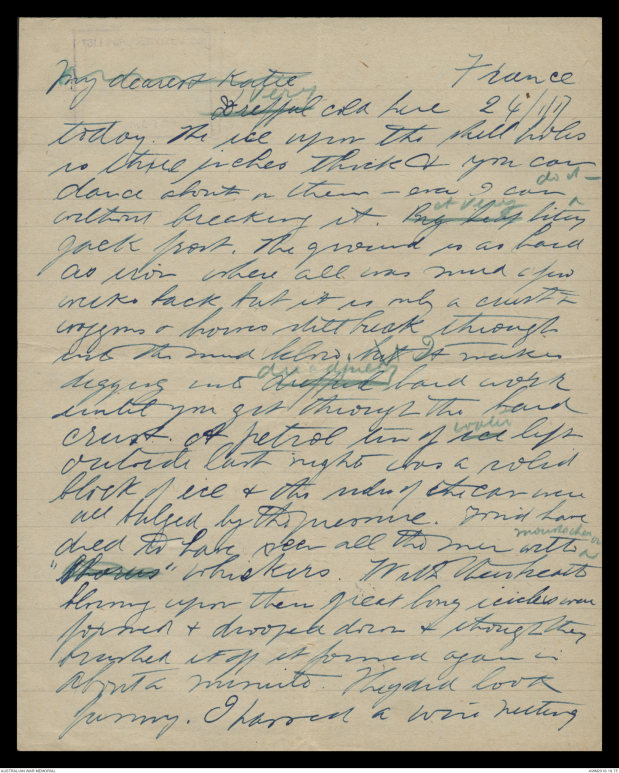 My dearest Katie France
very
Dreffful cold here 24/1/17
today. The ice upon the shell holes
is three inches thick & you can
dance about on them – even I can do it –
without breaking it. at very biting
Jack frost. The ground is as hard
as iron where all was mud a few
weeks back but it is only a crust &
waggons & horses still break through
into the mud below, but It makes
dreadfully
digging into hard work
until you get through the hard
water
crust. A petrol tin of ice left
outside last night was a solid
block of ice & the sides of the can were
all bulged by the pressure. You'd have
moustaches or
died to have seen all the men with
" " whiskers. With their breath
blowing upon them great long icicles were
formed & drooped down & though they
brushed it off it formed again in
about a minute. They did look
funny. I passed a wire netting
AUSTRALIAN WAR MEMORIAL